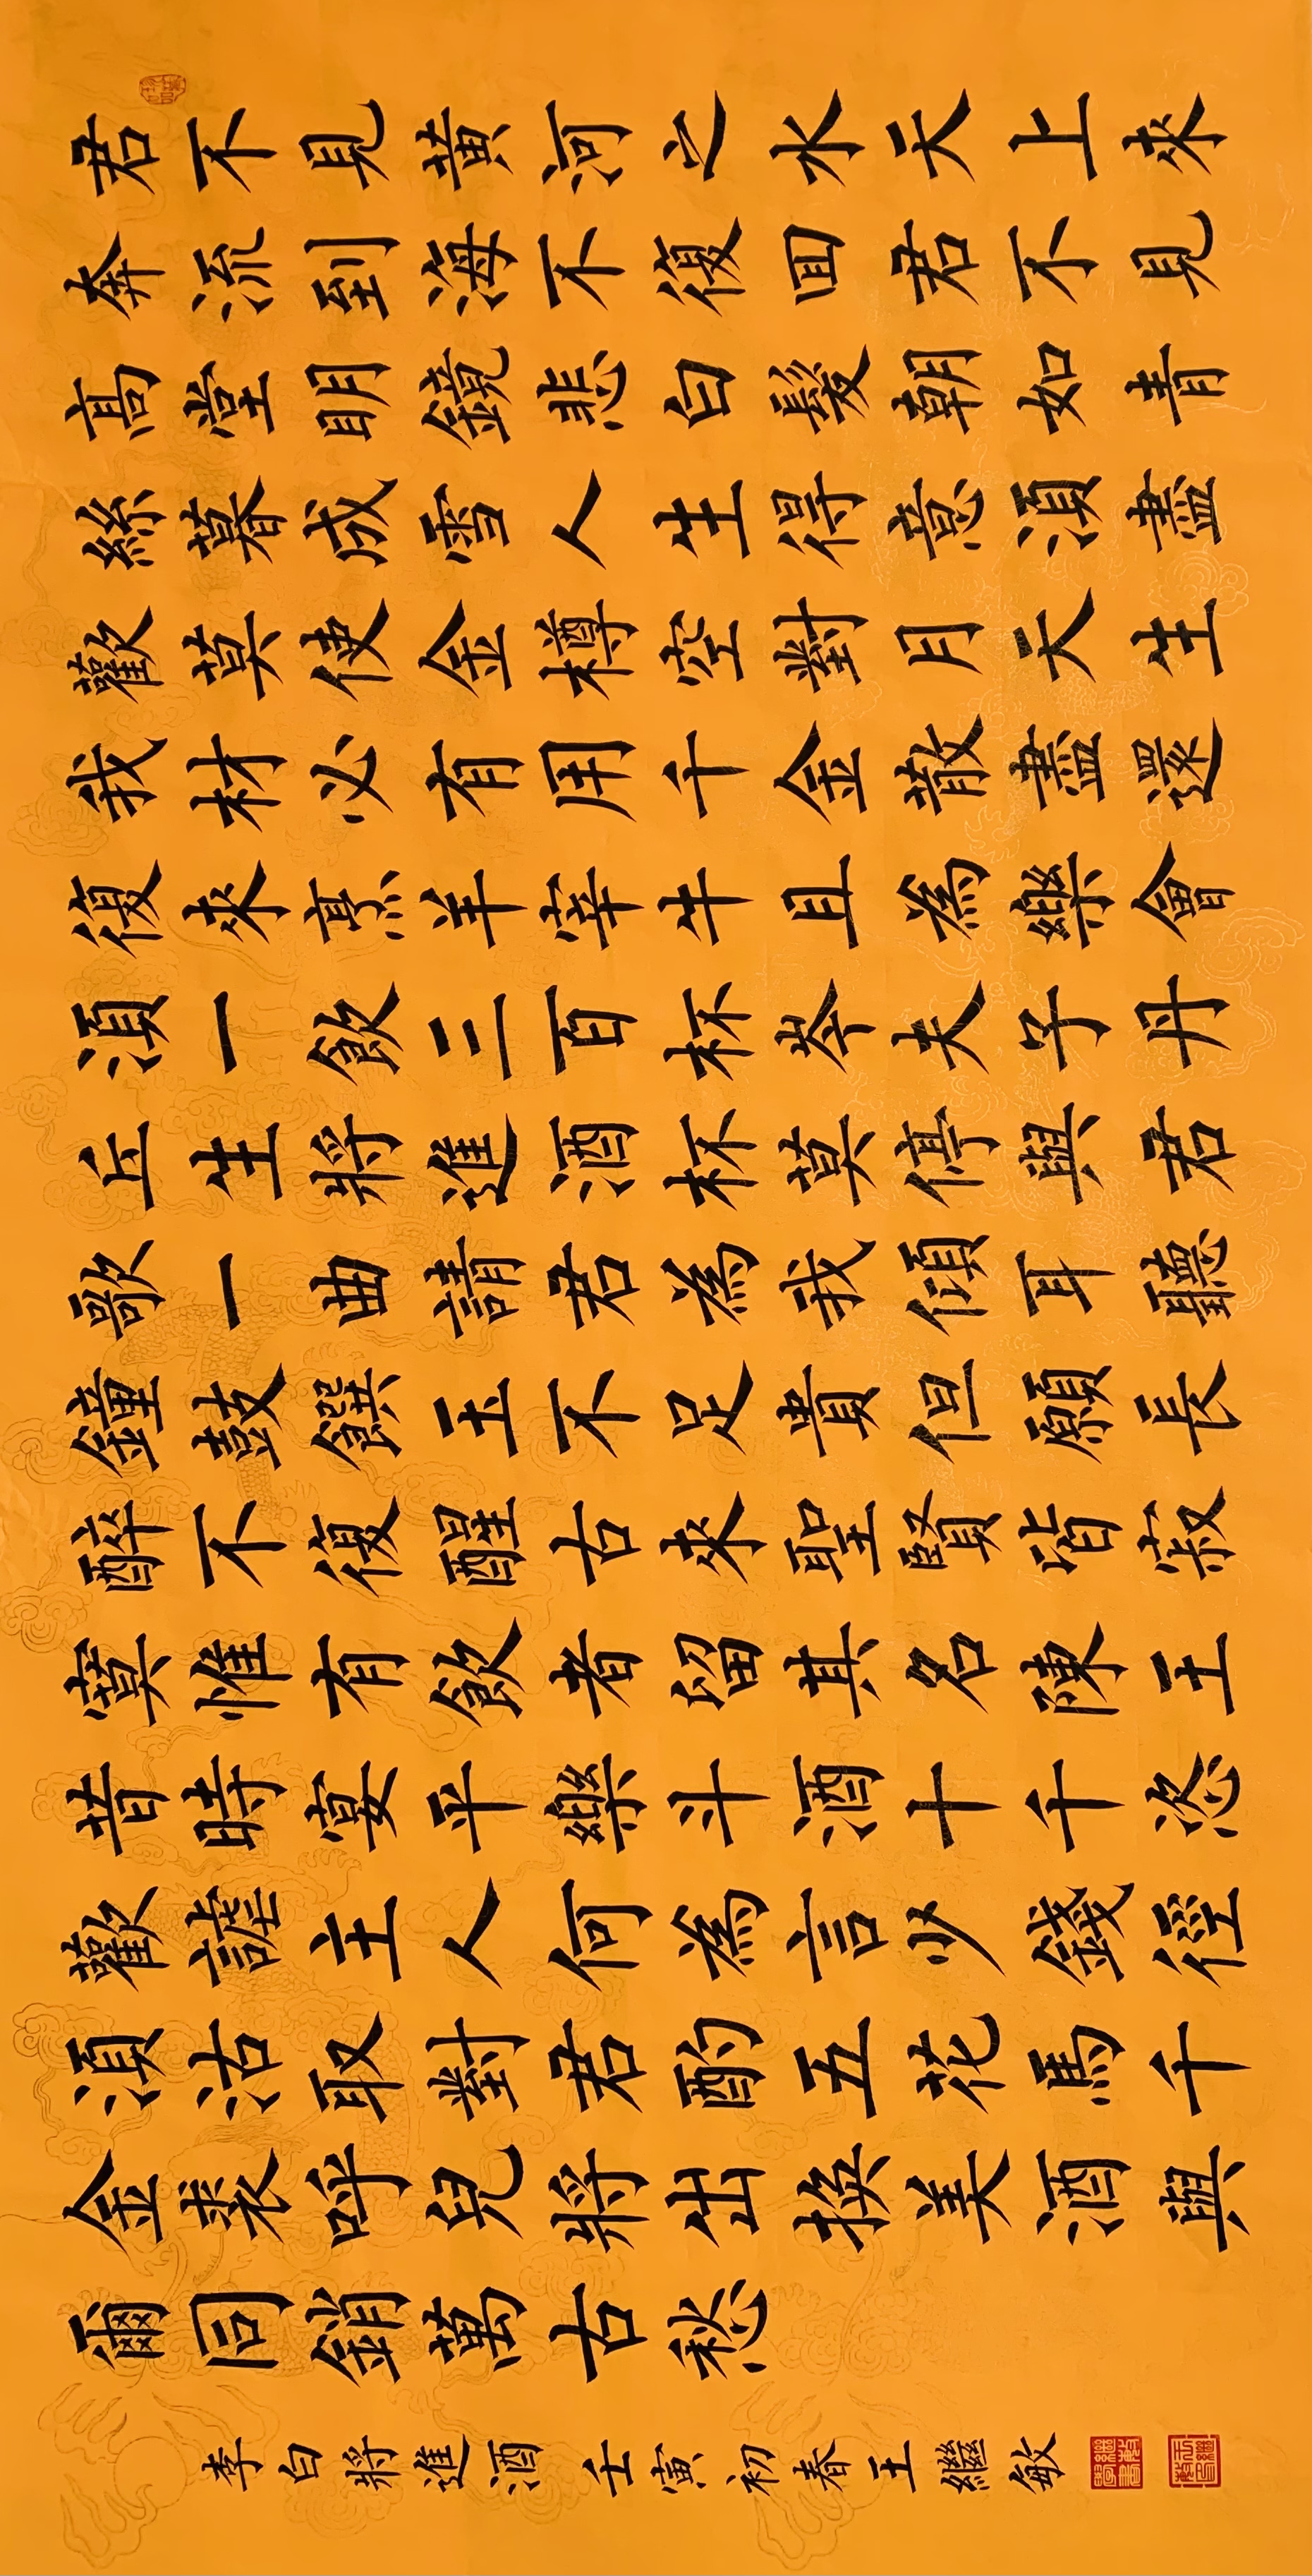 君不見黃河之水天上來
奔流到海不復回君不見
高堂明鏡悲白髮朝如青
絲暮成雪人生得意須盡
歡莫使金樽空對月天生
我材必有用千金散盡還
復來烹羊宰牛且為樂會
須一飲三百杯岑夫子丹
丘生將進酒杯莫停與君
歌一曲請君為我傾耳聽
鐘鼓饌玉不足貴但願長
醉不復醒古來聖賢皆寂
寞惟有飲者留其名陳王
昔時宴平樂斗酒十千恣
歡謔主人何為言少錢徑
須沽取對君酌五花馬千
金裘呼兒將出換美酒與
爾同銷萬古愁
李白將進酒 壬寅初春王繼敏